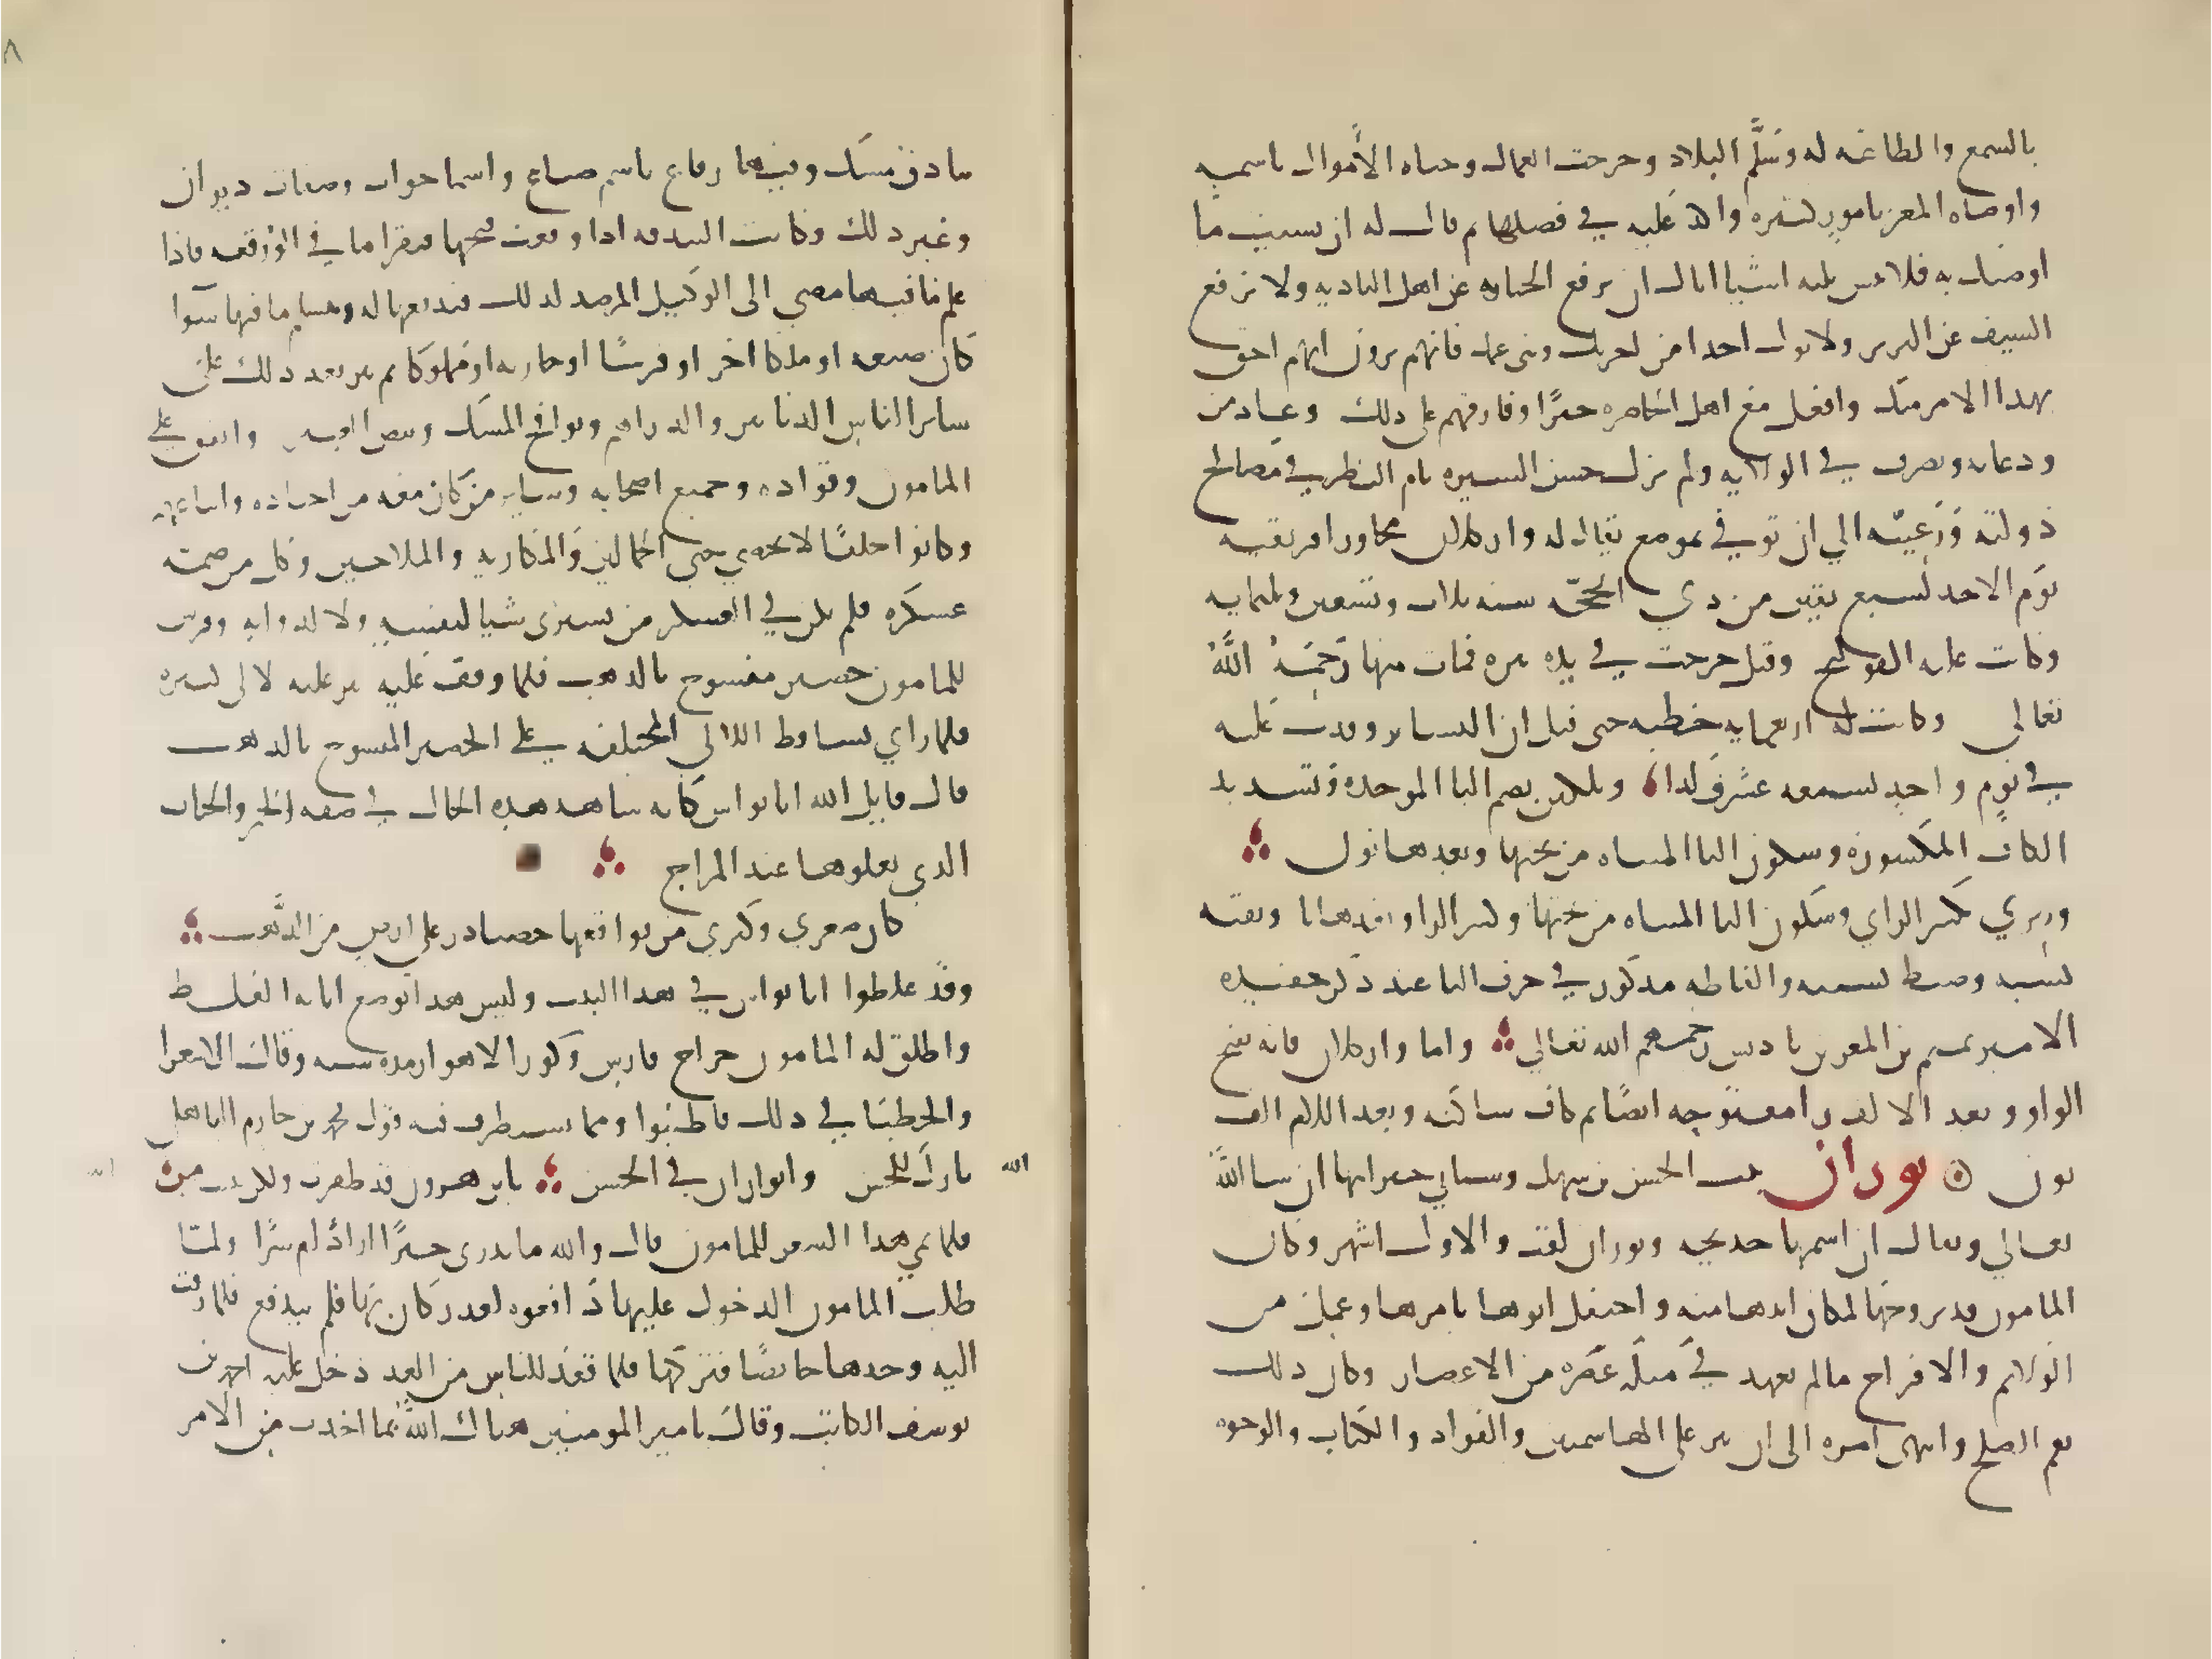 بالسمع والطاعة له وسلم البلاد وخرجت العمال وجباه الأموال باسمه
واوصاه المعز بامور كثيره واكد عليه في فصلها ثم قال له ان نسيت ما
اوصيتك به فلا تنس ثلثه اشيا اياك ان ترفع الجبايه عن اهل الباديه ولا ترفع
السيف عن البربر ولا تول احدا من اخوتك وبنى عمك فانهم يرون انهم احق
بهذا الامر منك وافعل مع اهل الحاضره خيرًا وفارقهم على ذلك وعاد من
وداعه وتصرف في الولايه ولم يزل حسن السيره تام النظر في مصالح
دولته ورعيته الي ان توفي بموضع يقال له واركلان مجاور افريقيه
يوم الاحد لسبع بقين من ذي الحجّه سنه ثلاث وتسعين وثلثمايه
وكانت علته القولنج وقيل خرجت في يده بثره فمات منها رَحِمَهُ اللَّهُ
تعالي وكانت له اربعمايه خطيه حتى قيل ان البشاير وفدت عليه
في يوم واحد لسبعه عشر ولدا وبلكين بضم البا الموحده وتشديد
الكاف المكسوره وسكون اليا المثناه من تحتها وبعدها نون
وزيري بكسر الزاي وسكون اليا المثناه من تحتها وكسر الرا وبعدها يا وبقيه
نسبه وضبط نسبه والفاظه مذكور في حرف التا عند ذكر حفيده
الامير تميم بن المعز بن باديس رحمهم الله تعالي واما واركلان فانه بفتح
الواو وبعد الالف را مفتوحه ايضًا ثم كاف ساكنه وبعد اللام الف
نون بوران بنت الحسن بن سهل وسياتي خبر ابيها ان شا اللَّه
تعالي ويقال ان اسمها خديجه وبوران لقب والاول اشهر وكان
المامون قد تزوجها لمكان ابيها منه واحتفل ابوها بامرها وعمل من
الولايم والافراح ما لم يعهد في مثله عصره من الاعصار وكان ذلك
بفم الصلح وانتهى امره الى ان نثر على الهاشميين والقواد والكتاب والوجوه
بنادق مسك وفيها رقاع باسم ضياع واسما جوار وصفات ديوان
وغير ذلك وكانت البندقه اذا وقعت فتحها فيقرا ما في الورقعه فاذا
علم ما فيها مضي الى الوكيل المرصد لذلك فيدفعها له ويتسلم ما فيها سوا
كان ضيعه او ملكا اخر او فرسًا او جاريه او مملوكا ثم نثر بعد ذلك على
ساير الناس الدنانير والدراهم ونوافج المسك وبيض العنبر وانفق على
المامون وقواده وجميع اصحابه وساير من كان معه من اجناده واتباعهم
وكانوا خلقًا لا يحصي حتي الحمالين والمكاريه والملاحين وكل من ضمه
عسكره فلم يكن في العسكر من يشترى شيا لنفسه ولا لدوابه وفرش
للمامون حصير منسوج بالذهب فلما وقف عليه نثر عليه لالى كثيره
فلما راي تساقط اللالى المختلفه على الحصير المنسوج بالذهب
قال قاتل الله ابا نواس كانه شاهد هذه الحال في صفه الخمر والحباب
الذي يعلوها عند المزاج
كان صغري وكبري من فواقعها حصبا در على ارض من الذَّهب
وقد غلطوا ابا نواس في هذا البيت وليس هذا موضع ابانه الغلط
واطلق له المامون خراج فارس وكور الاهواز مده سنه وقالت الشعرا
والخطبا في ذلك فاطنبوا ومما يستطرف فيه قول محمد بن حازم الباهلي
الله
بارك للحسن ولبوران في الختن يابن هرون قد ظفرت ولكن ببنت من
فلما نمي هذا الشعر للمامون قال والله ما ندرى خيرًا اراد ام شرًا ولما
طلب المامون الدخول عليها دافعوه لعذر كان بها فلم يندفع فلما زفت
اليه وجدها حايضًا فتركها فلما قعد للناس من الغد دخل عليه احمد بن
يوسف الكاتب وقال يا امير المومنين هناك الله بما اخذت من الامر